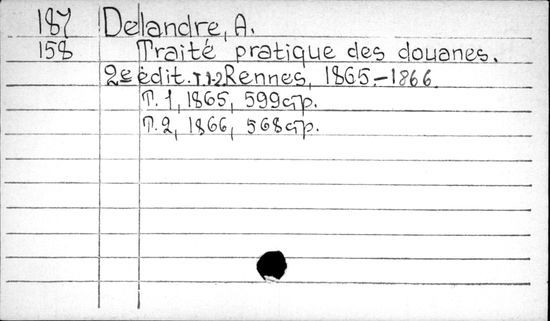 187 Delandre, A.
158 Traité pratique des douanes.
2e édit. T.1-2 Rennes, 1865.-1866.
T. 1, 1865, 599 стр.
T. 2, 1866, 568 стр.